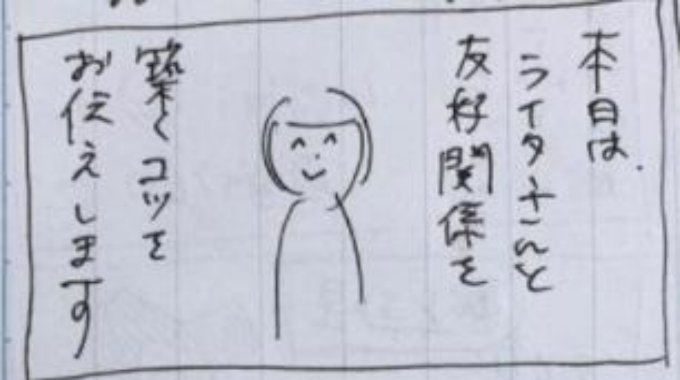 本日は、
ライターさんと
友好関係を
築くコツを
お伝えします